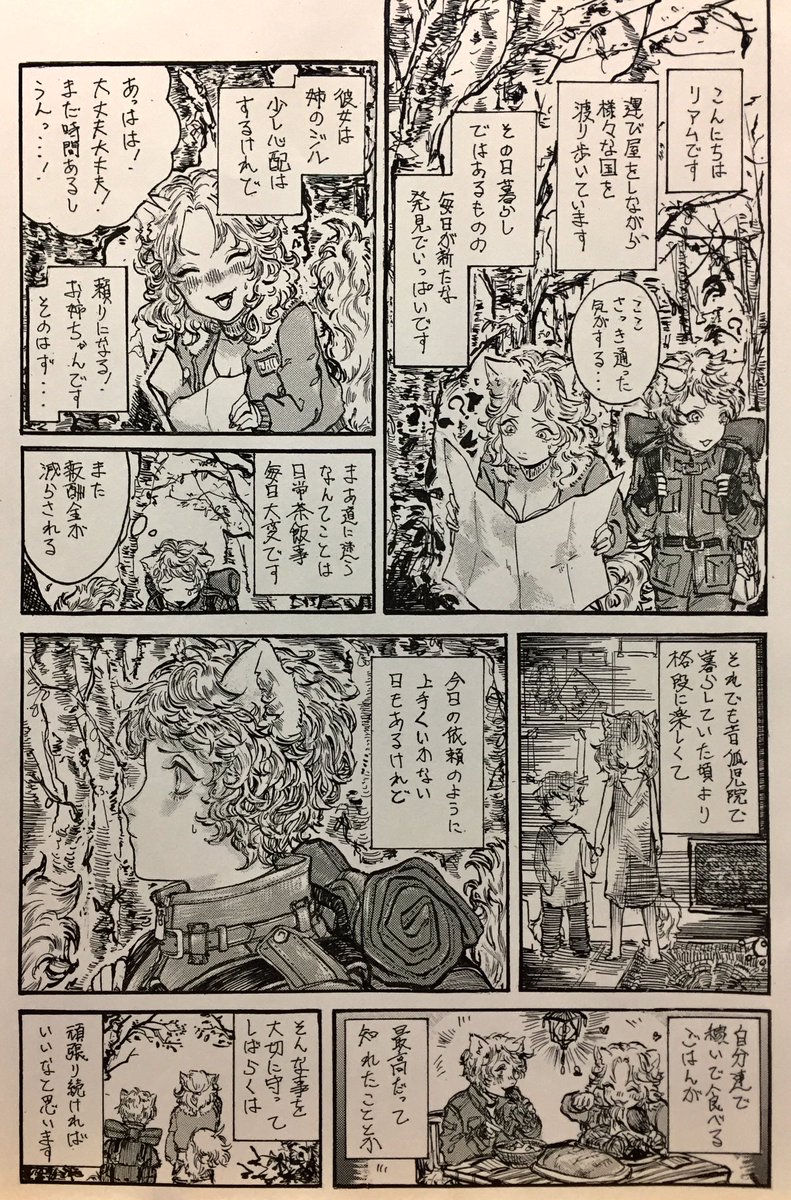 こんにちは
リアムです
運び屋をしながら
様々な国を
渡り歩いています
その日暮らし
ではあるものの
毎日が新たな
発見でいっぱいです
ここ
さっき通った
気がする・・・
彼女は
姉のジル
少し心配は
するけれど
あっはは!
大丈夫大丈夫!
まだ時間あるし
うんっ・・・!
頼りになる!
お姉ちゃんです
そのはず・・・・
まあ道に迷う
なんてことは
日常茶飯事
毎日大変です
また
報酬金が
減らされる
それでも昔孤児院で
暮らしていた頃より
格段に楽しくて
今日の依頼のように
上手くいかない
日もあるけれど
自分達で
稼いで食べる
ごはんが
最高だって
知れたことが
そんな事を
大切に守って
しばらくは
頑張り続ければ
いいなと思います